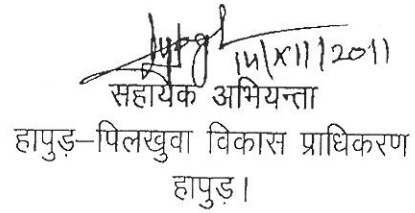 14/XII/2011
सहायक अभियन्ता
हापुड़–पिलखुवा विकास प्राधिकरण
हापुड़।